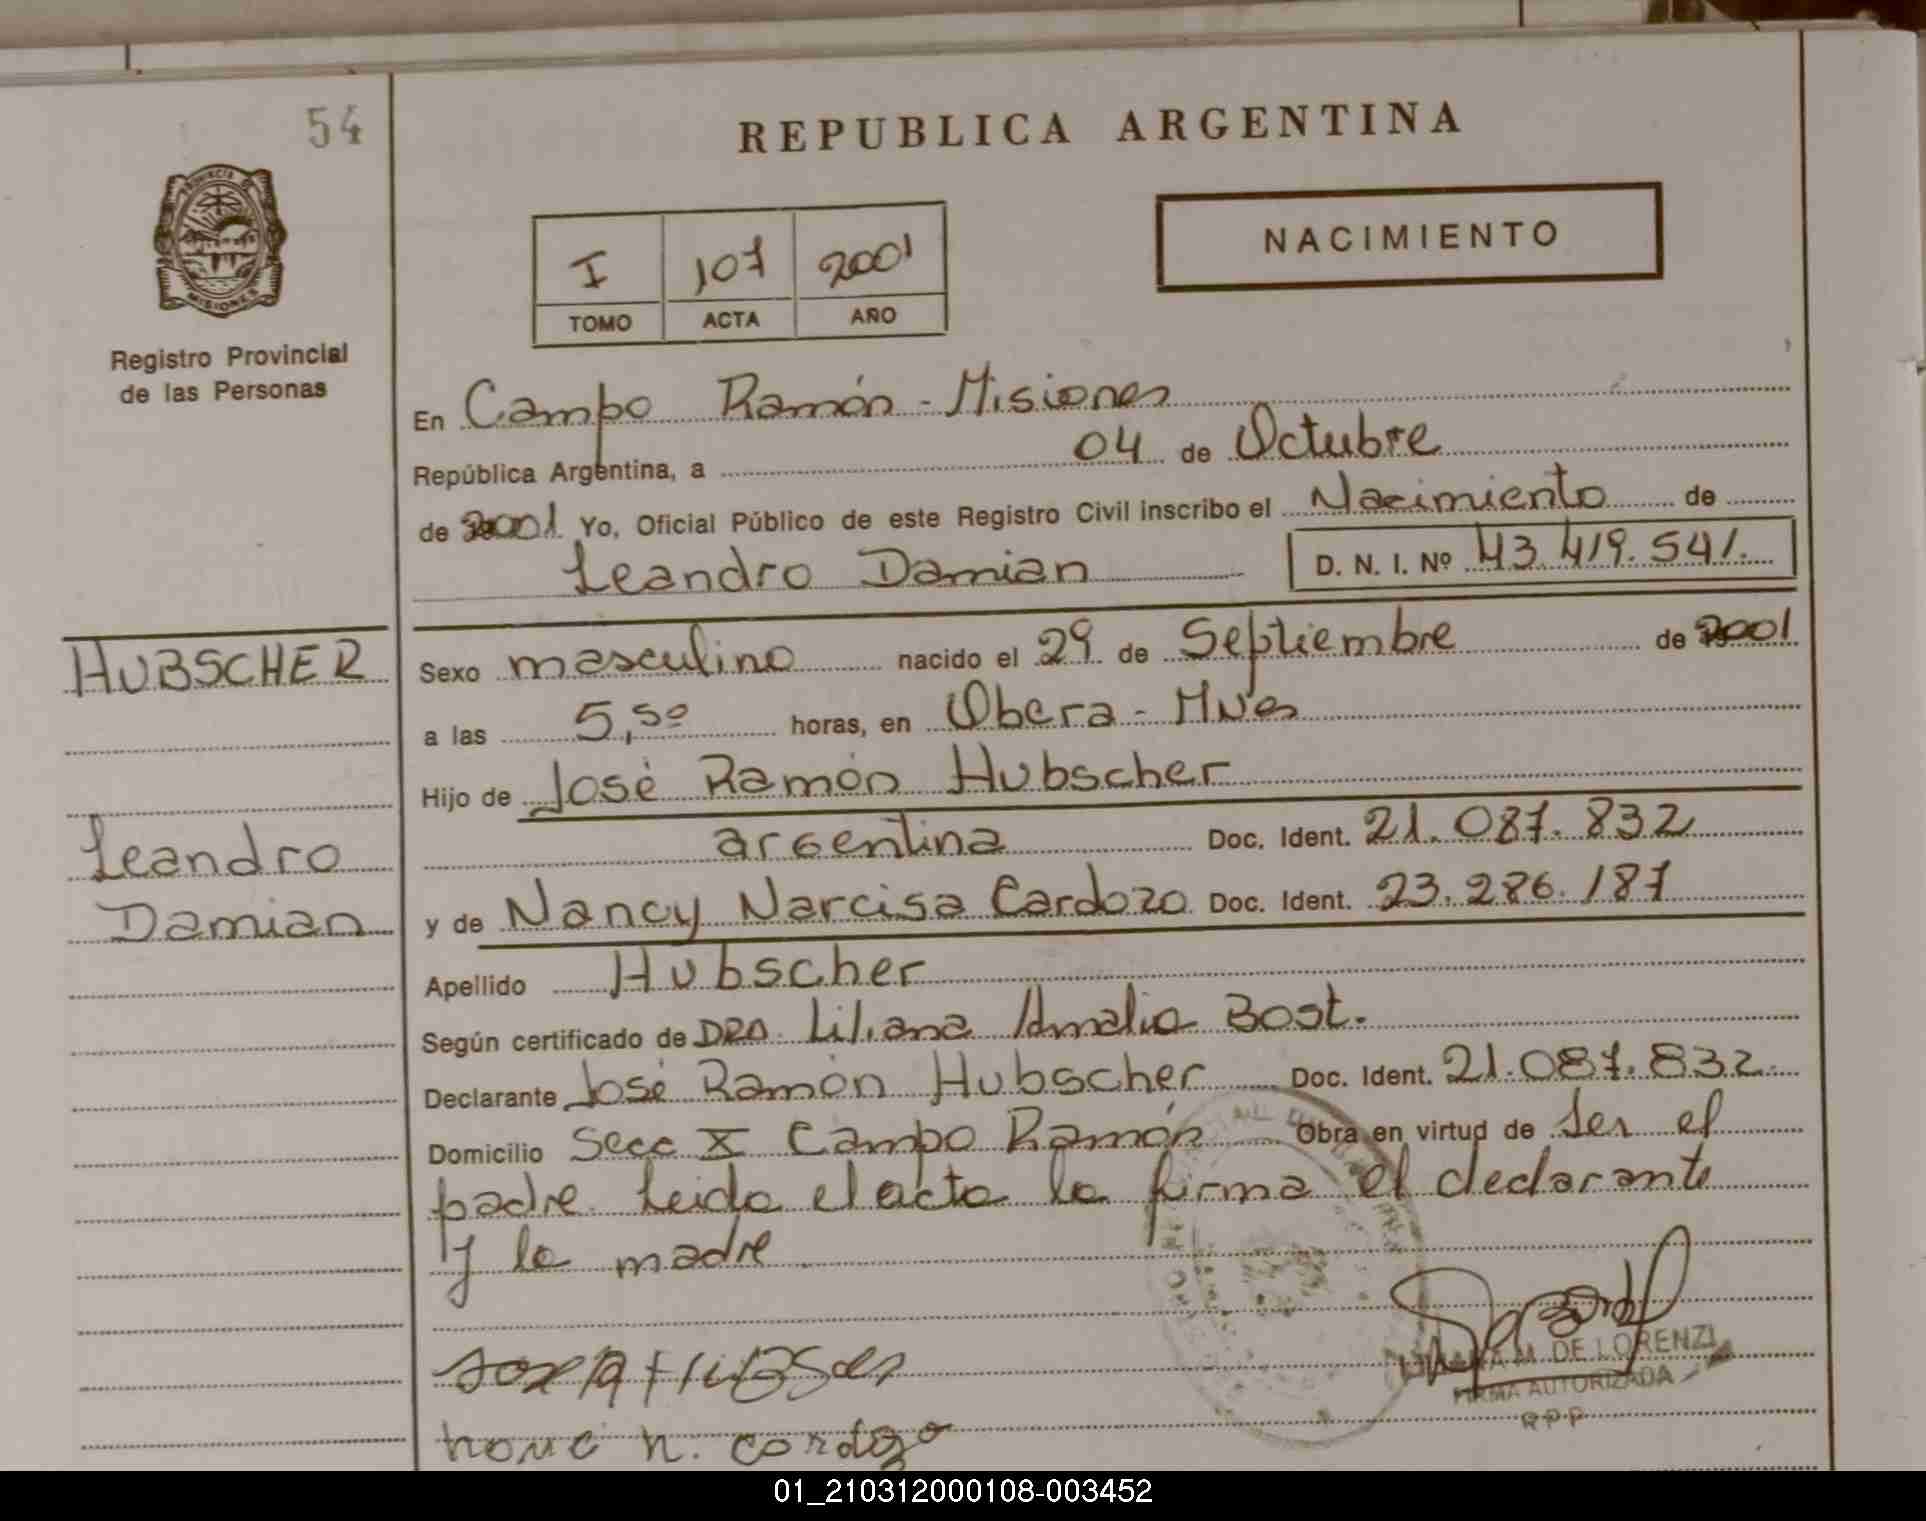 54
REPUBLICA ARGENTINA
PROVINCIA DE
MISIONES
Registro Provincial
de las Personas
I 107 2001
TOMO ACTA AÑO
NACIMIENTO
En Campo Ramón - Misiones
República Argentina, a 04 de Octubre
de 2001 Yo, Oficial Público de este Registro Civil inscribo el Nacimiento de
Leandro Damian D. N. I. Nº 43.419.541.
HUBSCHER
Sexo masculino nacido el 29 de Septiembre de 2001
a las 5,50 horas, en Obera - Mnes
Hijo de José Ramón Hubscher
argentina Doc. Ident. 21.087.832
Leandro
Damian
y de Nancy Narcisa Cardozo Doc. Ident. 23.286.187
Apellido Hubscher
Según certificado de DRA. Liliana Amalia Bost.
Declarante José Ramón Hubscher Doc. Ident. 21.087.832
Domicilio Secc X Campo Ramón Obra en virtud de ser el
padre. Leida el acta la firma el declarante
y la madre
M. DE LORENZI
FIRMA AUTORIZADA
R.P.P.
01_210312000108-003452